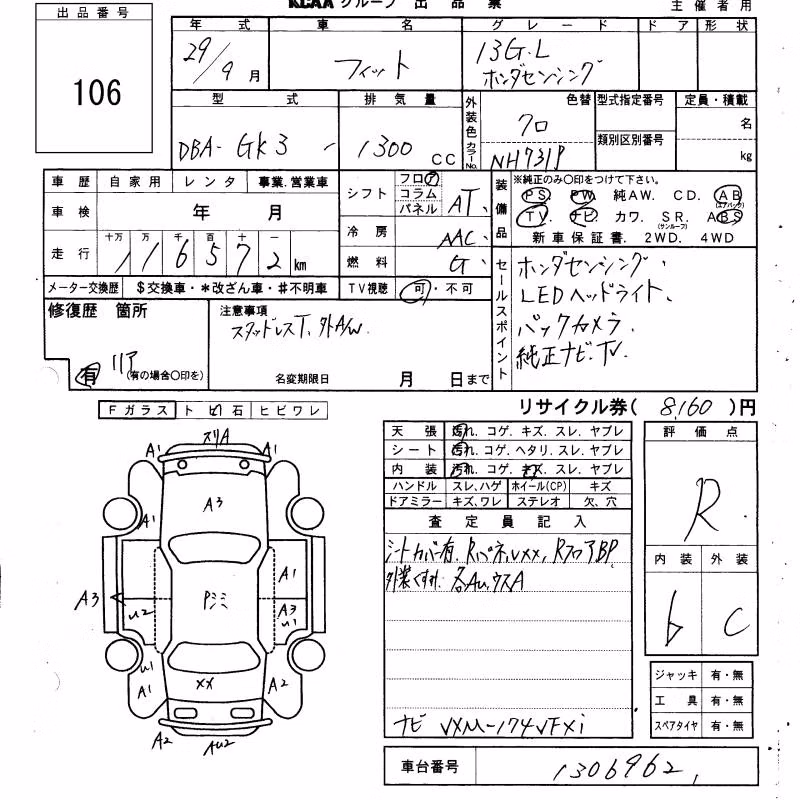 出品番号
106
KCAA グループ 出品票
主催者用
年式 車名 グレード ドア 形状
29/9月
フィット
13G・L
ホンダセンシング
型式 排気量 外装色 色替 型式指定番号 定員・積載
DBA-GK3
1300 CC
クロ
カラーNo. NH731P
類別区別番号
名
kg
車歴 自家用 レンタ 事業.営業車
車検 年 月
走行 十万 万 千 百 十 一
116572 km
メーター交換歴 $交換車・*改ざん車・#不明車
シフト フロア コラム パネル AT
冷房 AAC
燃料 G
TV視聴 可・不可
装備品
※純正のみ〇印をつけて下さい。
PS. PW. 純AW. CD. AB(エアバック)
TV. ナビ. カワ. SR.(サンルーフ) ABS
新車保証書. 2WD. 4WD
セールスポイント
ホンダセンシング、
LEDヘッドライト、
バックカメラ
純正ナビ・TV
修復歴 箇所
リア
有 (有の場合〇印を)
注意事項
スタッドレスT、外A/W
名変期限日 月 日まで
リサイクル券( 8,160 )円
Fガラス トビ石 ヒビワレ
天張 汚れ. コゲ. キズ. スレ. ヤブレ
シート 汚れ. コゲ. ヘタリ. スレ. ヤブレ
内装 汚れ. コゲ. キズ. スレ. ヤブレ
ハンドル スレ.ハゲ ホイール(CP) キズ
ドアミラー キズ.ワレ ステレオ 欠、穴
査定員記入
シートカバー有. Rパネルxx, RフロアBP
外装くすみ. 各AU,ウスA
ナビ VXM-174VFXi
評価点
R
内装 外装
b C
ジャッキ 有・無
工具 有・無
スペアタイヤ 有・無
車台番号 1306962
スリA
A1 A1
A3
A1
A1
A3 U2 Pシミ A3 U1
U1
A1 XX A2
A2 AU2